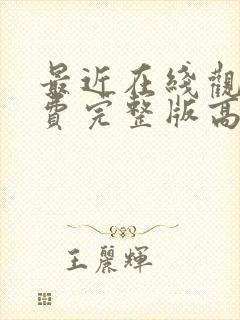 最近在线觀
費完整版高
王麗輝